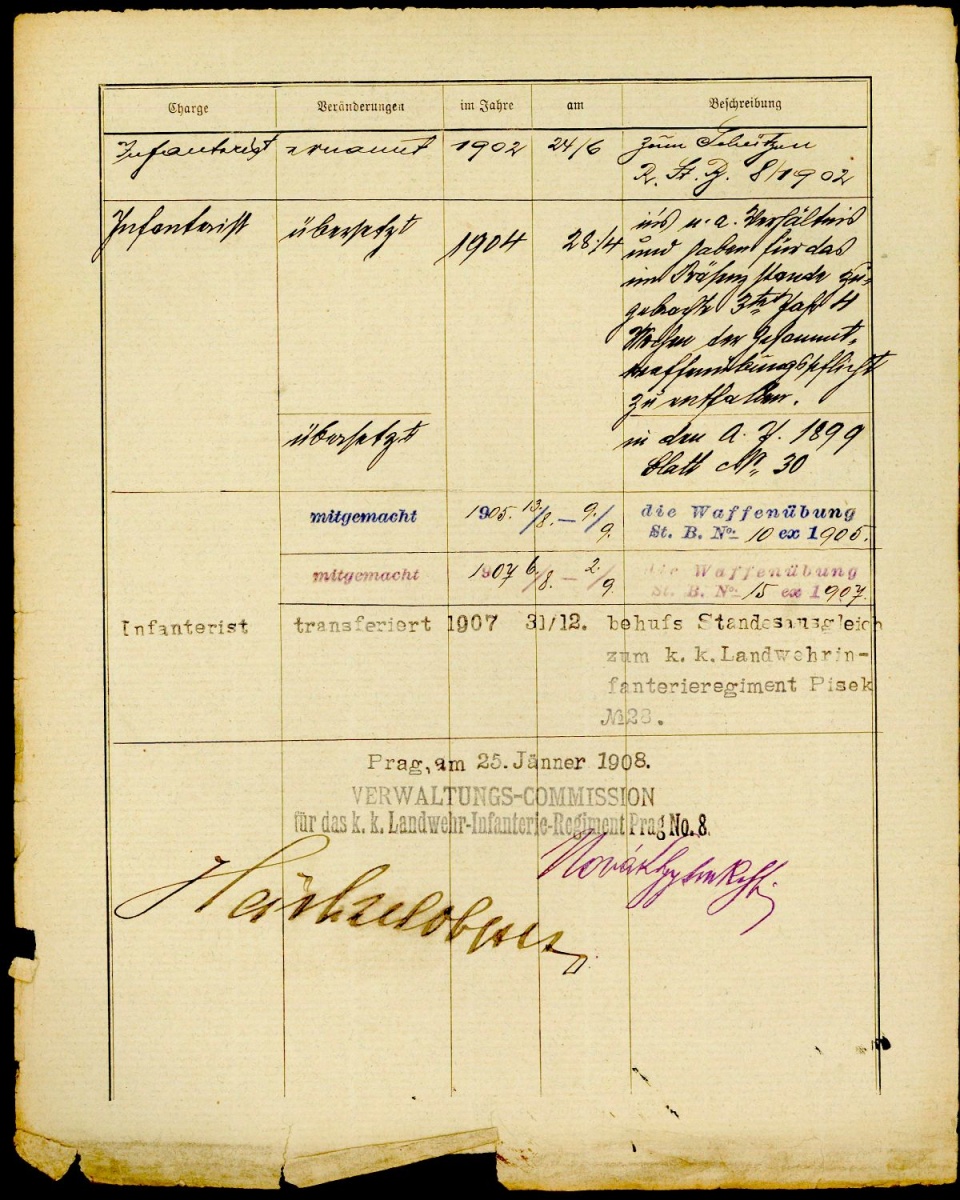 Charge Veränderungen im Jahre am Beschreibung
Infanterist ernannt 1902 24/6 zum Schützen
R. St. B. 8/1902
Infanterist übersetzt 1904 28./4 in's n. a. Verhältnis
und haben für das
im Präsenzstande zu-
gebrachte 3te Jahr 4
Wochen der Gesammt-
waffenübungspflicht
zu entfallen.
übersetzt in den A. J. 1899
Blatt No 30
mitgemacht 1905. 13./8. — 9./9. die Waffenübung
St. B. No. 10 ex 1905.
mitgemacht 1907 6./8. — 2./9. die Waffenübung
St. B. No. 15 ex 1907.
Infanterist transferiert 1907 31/12. behufs Standesausgleich
zum k. k. Landwehrin-
fanterieregiment Pisek
№28.
Prag, am 25. Jänner 1908.
VERWALTUNGS-COMMISSION
für das k. k. Landwehr-Infanterie-Regiment Prag No. 8.
Novák